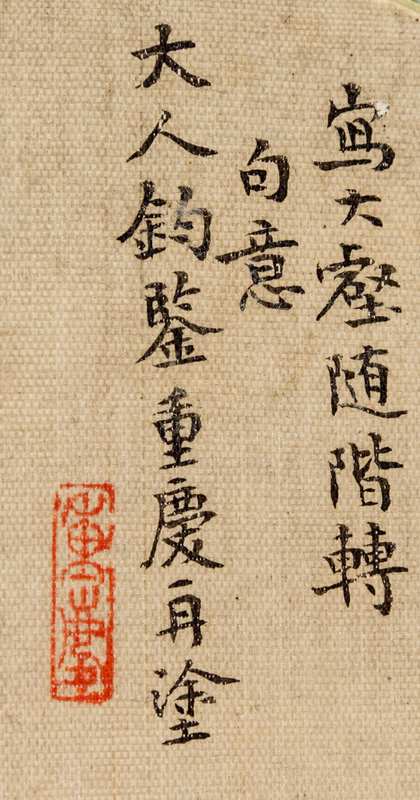 寫大壑随階轉
句意
大人鈞鑒重慶塗